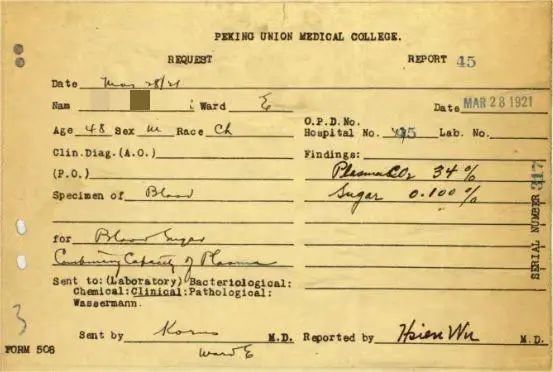 PEKING UNION MEDICAL COLLEGE.
REQUEST REPORT 45
Date Mar 28/21
Nam Ward E Date MAR 28 1921
Age 48 Sex M Race Ch
O.P.D.No.
Hospital No. Lab. No.
Clin.Diag.(A.O.) Findings:
(P.O.) Plasma CO2 34 %
Specimen of Blood Sugar 0.100 %
for Blood Sugar
Combining Capacity of Plasma
Sent to:(Laboratory) Bacteriological:
Chemical:Clinical:Pathological:
Wassermann.
SERIAL NUMBER 517
3
Sent by M.D. Reported by Hsien Wu M.D.
Ward E
FORM 506